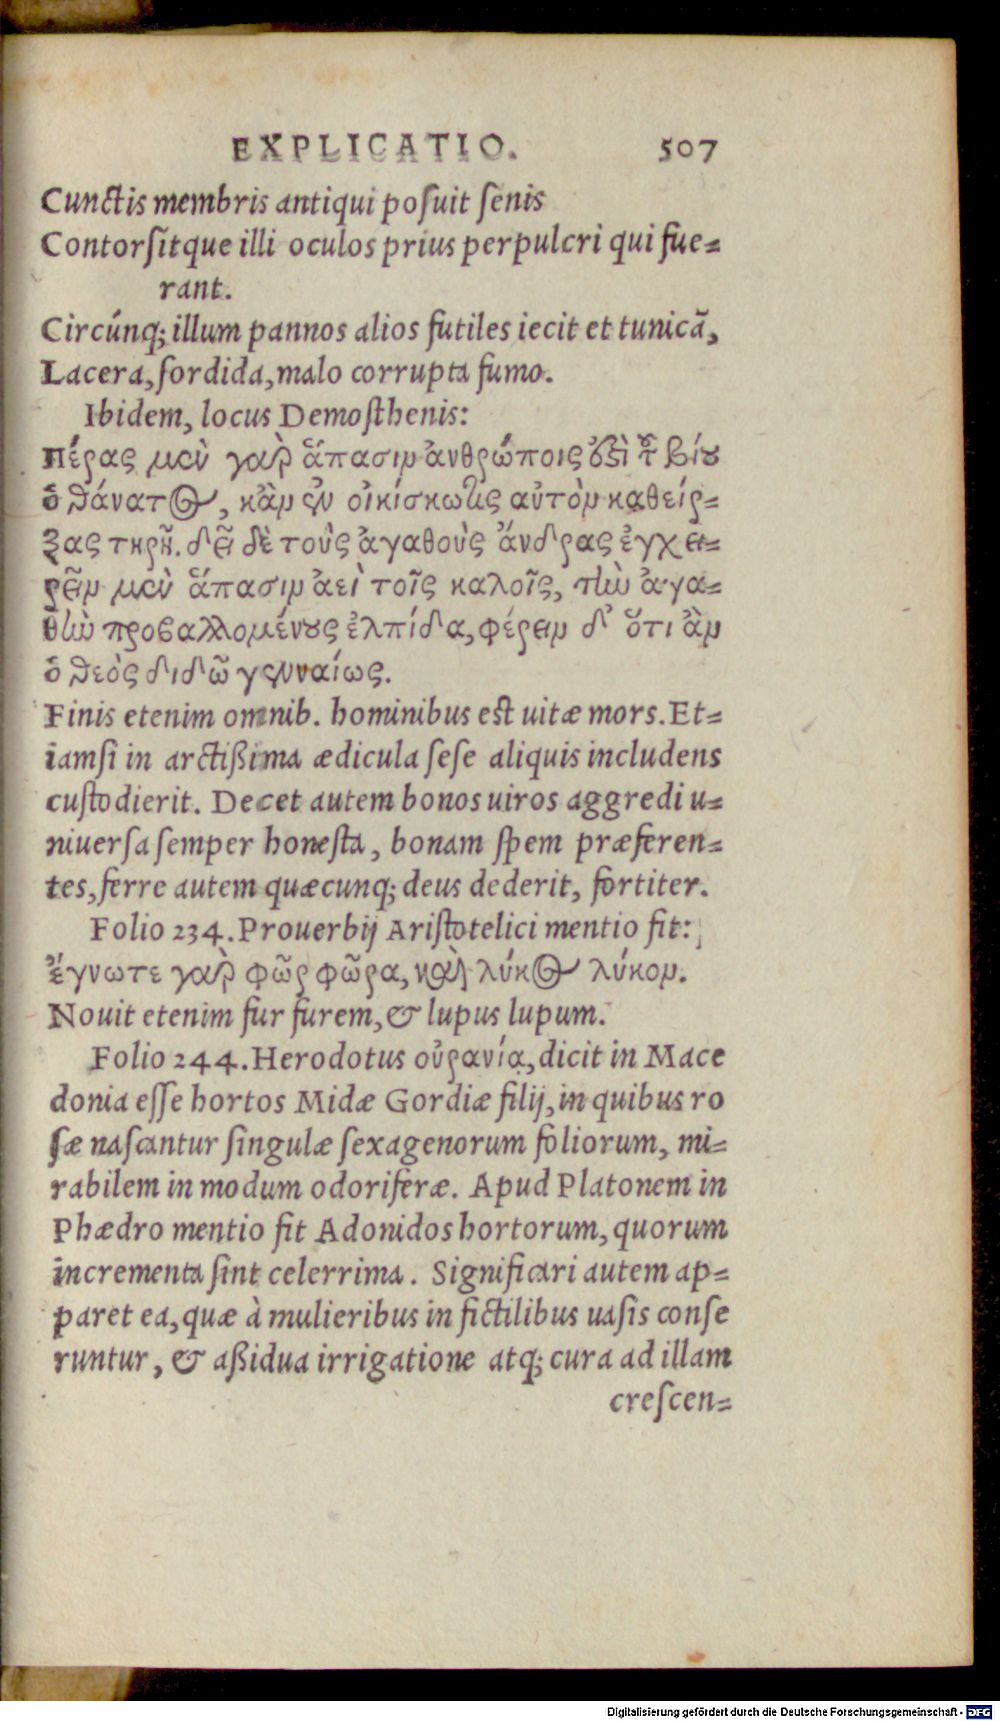 EXPLICATIO. 507
Cunctis membris antiqui posuit senis
Contorsitque illi oculos prius perpulcri qui fue=
rant.
Circúnq; illum pannos alios futiles iecit et tunicã,
Lacera, sordida, malo corrupta fumo.
Ibidem, locus Demosthenis:
πέρας μὲν γὰρ ἅπασιν ἀνθρώποις ὅξὶ τ῀ βίου
ὁ θάνατος, κἂν ἐν οἰκίσκῳ τις αὐτὸν καθείρ=
ξας τηρῇ. δεῖ δὲ τοὺς ἀγαθοὺς ἄνδρας ἐγχει=
ρεῖν μὲν ἅπασιν ἀεὶ τοῖς καλοῖς, τὴν ἀγα=
θὴν προβαλλομένους ἐλπίδα, φέρειν δ' ὅτι ἂν
ὁ θεὸς διδῶ γενναίως.
Finis etenim omnib. hominibus est uitæ mors. Et=
iamsi in arctißima ædicula sese aliquis includens
custodierit. Decet autem bonos uiros aggredi u=
niuersa semper honesta, bonam spem præferen=
tes, ferre autem quæcunq; deus dederit, fortiter.
Folio 234. Prouerbij Aristotelici mentio fit:
ἔγνωτε γὰρ φῶς φῶρα, καὶ λύκος λύκον.
Nouit etenim fur furem, & lupus lupum.
Folio 244. Herodotus οὐρανία, dicit in Mace
donia esse hortos Midæ Gordiæ filij, in quibus ro
sæ nascantur singulæ sexagenorum foliorum, mi=
rabilem in modum odoriferæ. Apud Platonem in
Phædro mentio fit Adonidos hortorum, quorum
incrementa sint celerrima. Significari autem ap=
paret ea, quæ à mulieribus in fictilibus uasis conse
runtur, & aßidua irrigatione atq; cura ad illam
crescen=
Digitalisierung gefördert durch die Deutsche Forschungsgemeinschaft - DFG